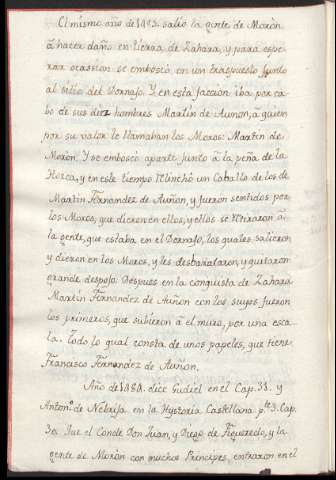 El mismo año de 1483. salió la gente de Moròn
â hacer daño en tierra de Zahara, y para espe-
rar ocassion se emboscó en un traspuesto junto
al sitio del Dornajo. Y en esta faccion iba por ca-
bo de sus diez hombres Martin de Auñon, â quien
por su valor le llamaban los Moros: Martin de
Moròn. Y se emboscó aparte junto â la peña de la
Horca, y en este tiempo relinchò un Caballo de los de
Martin Fernandez de Auñon, y fueron sentidos por
los Moros, que dieron en ellos, y ellos se retiraron â
la gente, que estaba en el Dornajo, los quales salieron
y dieron en los Moros, y les desbarataron, y quitaron
grande despojo. Despues en la conquista de Zahara
Martin Fernandez de Auñon con los suyos fueron
los primeros, que subieron â el muro, por una esca-
la. Todo lo qual consta de unos papeles, que tiene
Francisco Fernandez de Auñon.
Año de 1484. dice Gudiel en el Cap. 33. y
Anton.º de Nebrija en la Hystoria Castellana pte 3. Cap.
30. Fue el Conde Don Juan, y Diego de Figueredo, y la
gente de Moròn con muchos Principes, entraron en el